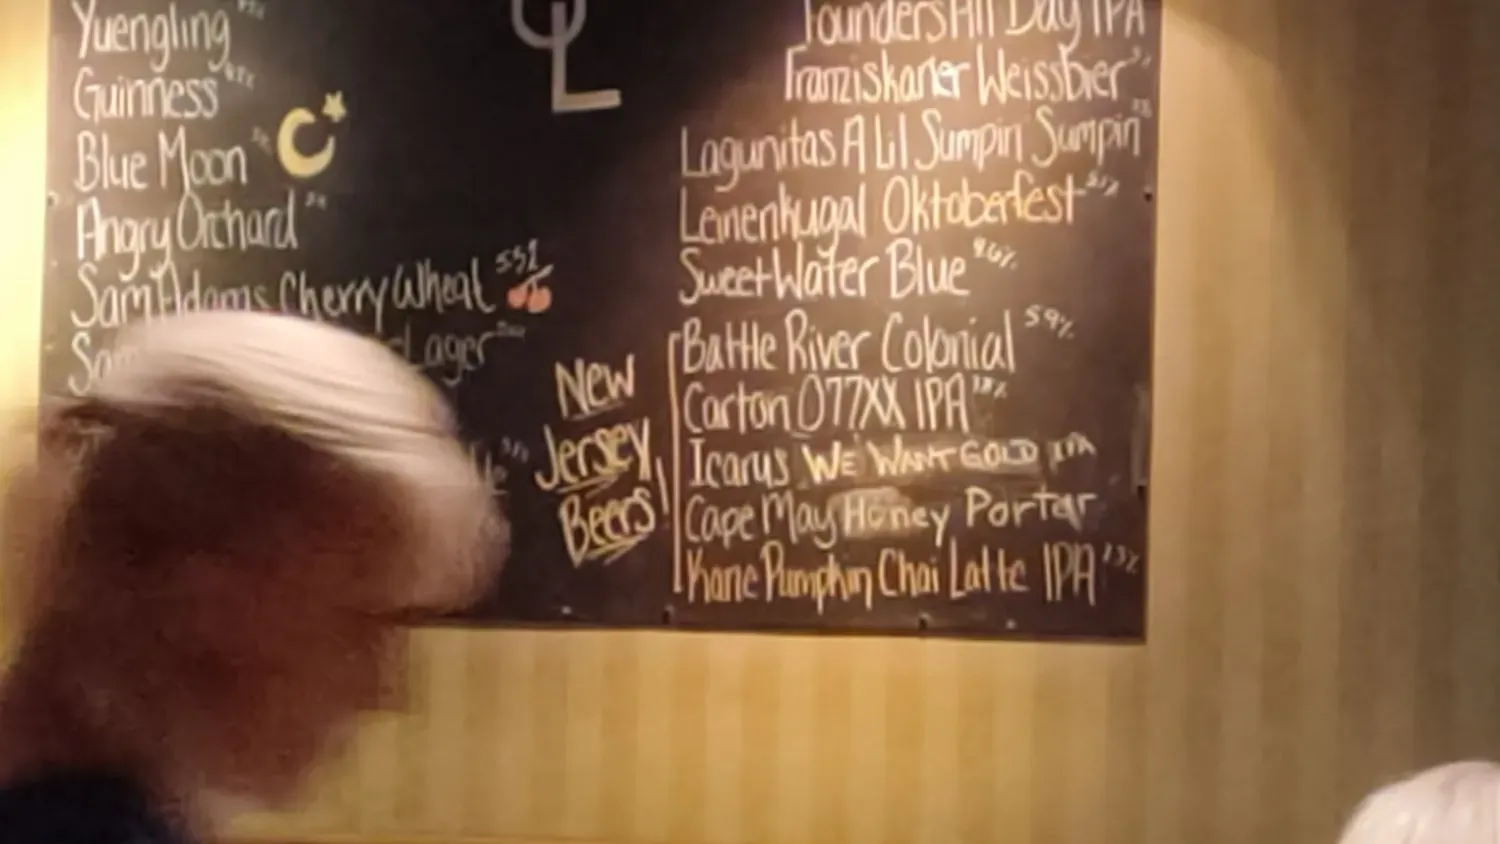 Yuengling
Guinness
Blue Moon
Angry Orchard
Sam Adams Cherry Wheat
Sam
Lager
QL
Founders All Day IPA
Franziskaner Weissbier
Lagunitas A Lil Sumpin Sumpin
Leinenkugal Oktoberfest
SweetWater Blue
New
Jersey
Beers!
Battle River Colonial 5.9%
Carton 077XX IPA
Icarus WE WANT GOLD IPA
Cape May Honey Porter
Kane Pumpkin Chai Latte IPA